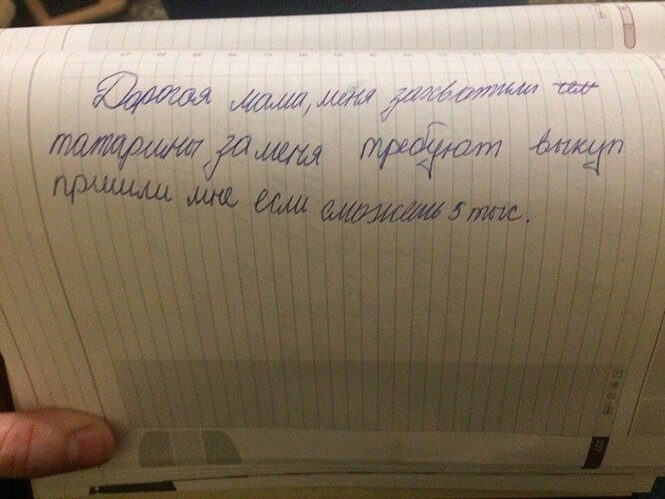 Дорогая мама, меня захватили
татарины, за меня требуют выкуп
пришли мне если сможешь 5 тыс.